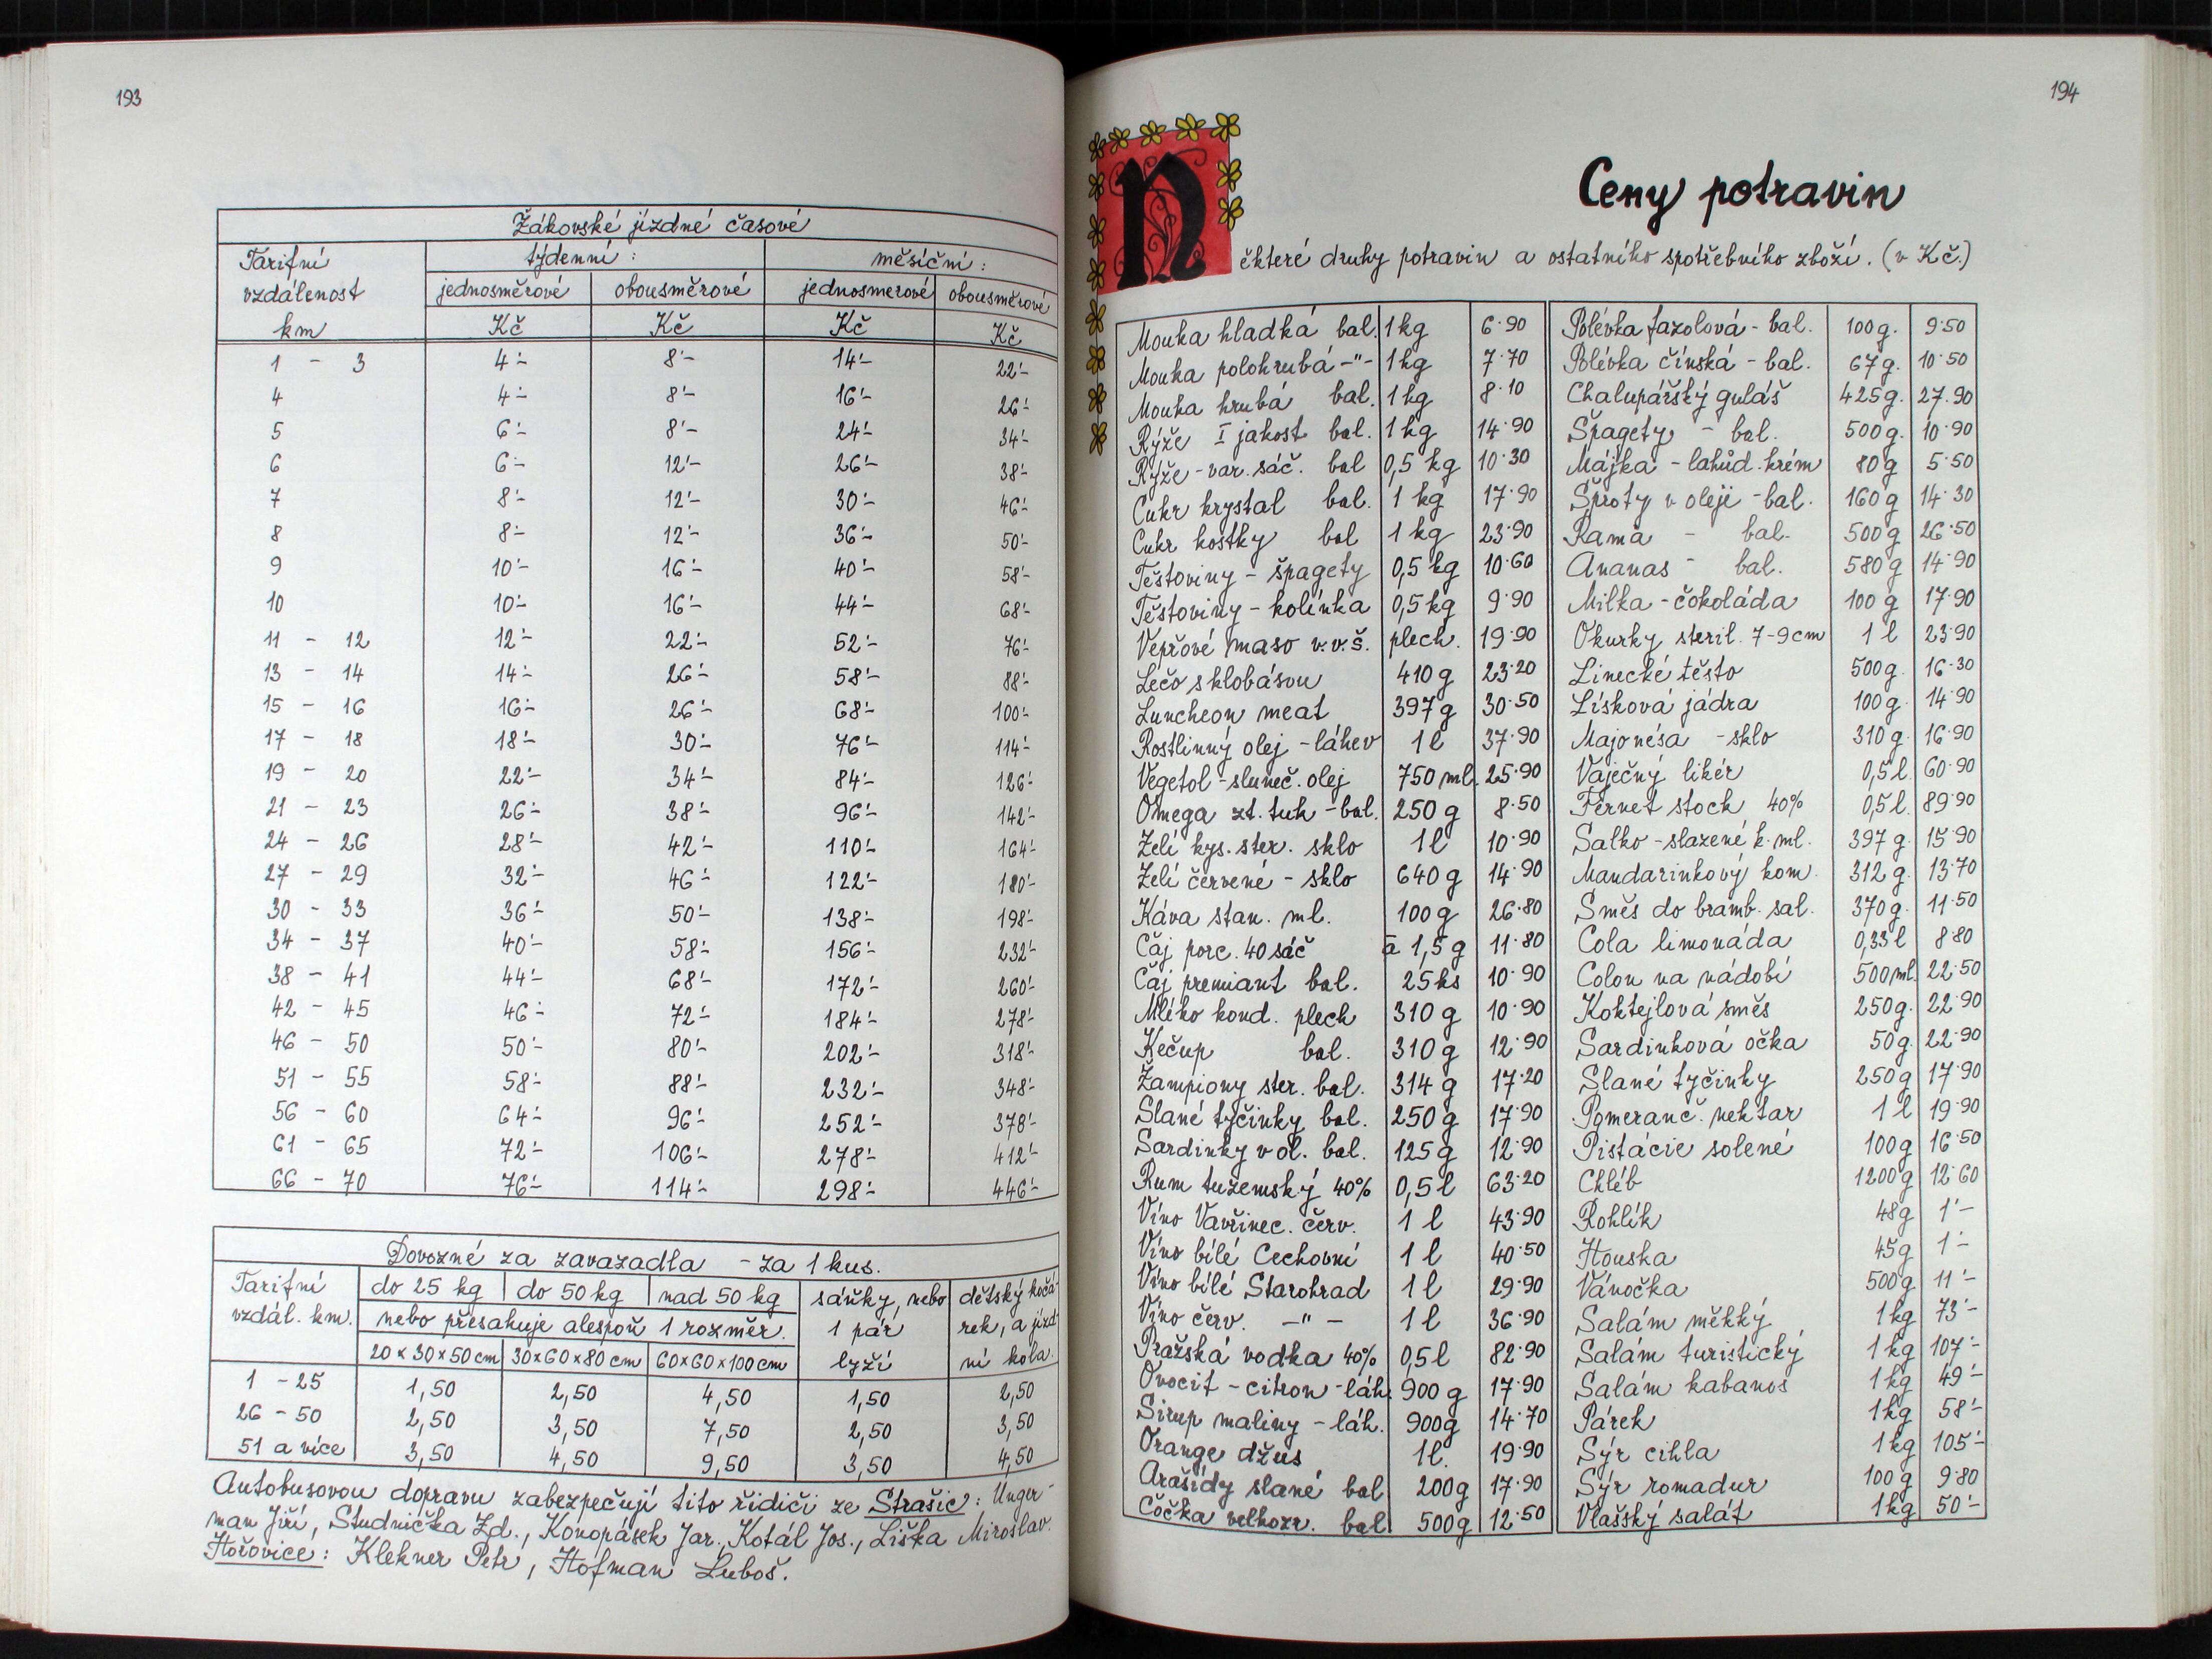 193
Žákovské jízdné časové
Tarifní týdenní: měsíční:
vzdálenost jednosměrové obousměrové jednosmerové obousměrové
km Kč Kč Kč Kč
1 - 3 4'- 8'- 14'- 22'-
4 4'- 8'- 16'- 26'-
5 6'- 8'- 24'- 34'-
6 6'- 12'- 26'- 38'-
7 8'- 12'- 30'- 46'-
8 8'- 12'- 36'- 50'-
9 10'- 16'- 40'- 58'-
10 10'- 16'- 44'- 68'-
11 - 12 12'- 22'- 52'- 76'-
13 - 14 14'- 26'- 58'- 88'-
15 - 16 16'- 26'- 68'- 100'-
17 - 18 18'- 30'- 76'- 114'-
19 - 20 22'- 34'- 84'- 126'-
21 - 23 26'- 38'- 96'- 142'-
24 - 26 28'- 42'- 110'- 164'-
27 - 29 32'- 46'- 122'- 180'-
30 - 33 36'- 50'- 138'- 198'-
34 - 37 40'- 58'- 156'- 232'-
38 - 41 44'- 68'- 172'- 260'-
42 - 45 46'- 72'- 184'- 278'-
46 - 50 50'- 80'- 202'- 318'-
51 - 55 58'- 88'- 232'- 348'-
56 - 60 64'- 96'- 252'- 378'-
61 - 65 72'- 106'- 278'- 412'-
66 - 70 76'- 114'- 298'- 446'-
Dovozné za zavazadla - za 1 kus.
Tarifní do 25 kg do 50 kg nad 50 kg sáňky, nebo dětský kočá-
vzdál. km. nebo přesahuje alespoň 1 rozměr. 1 pár rek, a jízd-
20 x 30 x 50 cm 30x60x80 cm 60x60x100cm lyží ní kola.
1 - 25 1,50 2,50 4,50 1,50 2,50
26 - 50 2,50 3,50 7,50 2,50 3,50
51 a více 3,50 4,50 9,50 3,50 4,50
Autobusovou dopravu zabezpečují tito řidiči ze Strašic: Unger-
man Jiří, Studnička Zd., Konopásek Jar., Kotál Jos., Liška Miroslav.
Hořovice: Klekner Petr, Hofman Luboš.
194
Ceny potravin
Některé druhy potravin a ostatního spotřebního zboží. (v Kč.)
Mouka hladká bal. 1 kg 6·90
Mouka polohrubá -"- 1 kg 7·70
Mouka hrubá bal. 1 kg 8·10
Rýže I jakost bal. 1 kg 14·90
Rýže - var. sáč. bal 0,5 kg 10·30
Cukr krystal bal. 1 kg 17·90
Cukr kostky bal 1 kg 23·90
Těstoviny - špagety 0,5 kg 10·60
Těstoviny - kolínka 0,5 kg 9·90
Vepřové maso v.v.š. plech. 19·90
Lečo s klobásou 410 g 23·20
Luncheon meat 397 g 30·50
Rostlinný olej - láhev 1 l 37·90
Vegetol - sluneč. olej 750 ml. 25·90
Omega zt. tuk - bal. 250 g 8·50
Zelí kys. ster. sklo 1 l 10·90
Zelí červené - sklo 640 g 14·90
Káva stan. ml. 100 g 26·80
Čaj porc. 40 sáč á 1,5 g 11·80
Čaj premiant bal. 25 ks 10·90
Mléko kond. plech 310 g 10·90
Kečup bal. 310 g 12·90
Žampiony ster. bal. 314 g 17·20
Slané tyčinky bal. 250 g 17·90
Sardinky v ol. bal. 125 g 12·90
Rum tuzemský 40% 0,5 l 63·20
Víno Vavřinec. červ. 1 l 43·90
Víno bílé Cechovní 1 l 40·50
Víno bílé Starohrad 1 l 29·90
Víno červ. -"- 1 l 36·90
Pražská vodka 40% 0,5 l 82·90
Ovocit - citron - láh. 900 g 17·90
Sirup maliny - láh. 900g 14·70
Orange džus 1 l. 19·90
Arašídy slané bal 200g 17·90
Čočka velkozr. bal 500g 12·50
Polévka fazolová - bal. 100 g. 9·50
Polévka čínská - bal. 67 g. 10·50
Chalupářský guláš 425 g. 27·90
Špagety - bal. 500 g. 10·90
Májka - lahůd. krém 80 g 5·50
Šproty v oleji - bal. 160 g 14·30
Rama - bal. 500 g 26·50
Ananas - bal. 580 g 14·90
Milka - čokoláda 100 g 17·90
Okurky steril. 7-9 cm 1 l 23·90
Linecké těsto 500 g. 16·30
Lísková jádra 100 g. 14·90
Majonésa - sklo 310 g. 16·90
Vaječný likér 0,5 l. 60·90
Fernet stock 40% 0,5 l. 89·90
Salko - slazené k. ml. 397 g. 15·90
Mandarinkový kom. 312 g. 13·70
Směs do bramb. sal. 370 g. 11·50
Cola limonáda 0,33 l 8·80
Colon na nádobí 500 ml. 22·50
Koktejlová směs 250g. 22·90
Sardinková očka 50 g. 22·90
Slané tyčinky 250 g 17·90
Pomeranč. nektar 1 l 19·90
Pistácie solené 100 g 16·50
Chléb 1200 g 12·60
Rohlík 48g 1'-
Houska 45g 1'-
Vánočka 500g 11'-
Salám měkký 1 kg 73'-
Salám turistický 1 kg 107'-
Salám kabanos 1 kg 49'-
Párek 1 kg 58'-
Sýr cihla 1 kg 105'-
Sýr romadur 100 g 9·80
Vlašský salát 1 kg 50'-